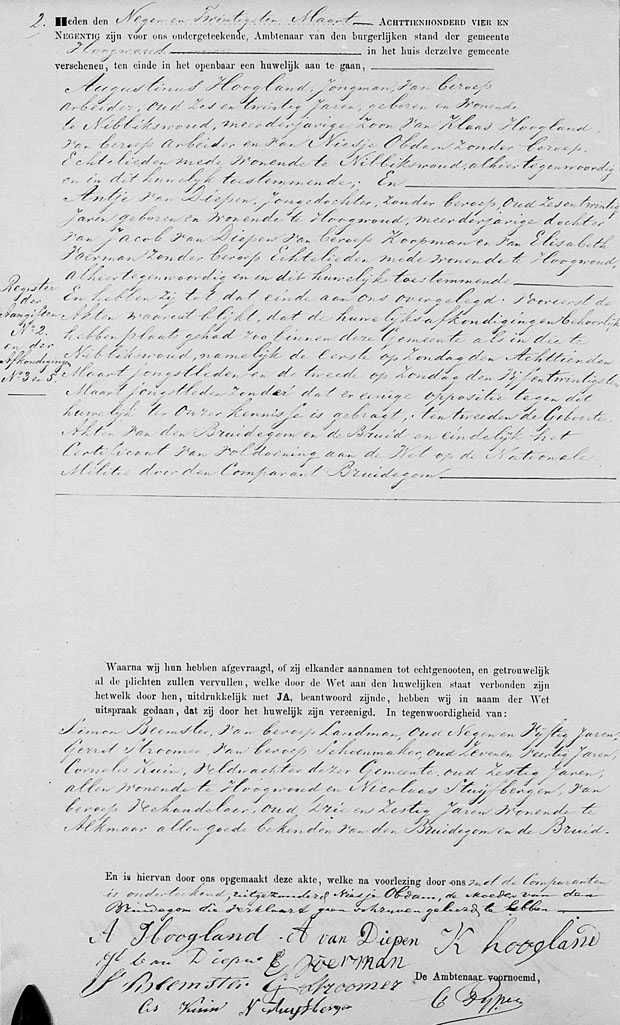 2. Heden den Negen en Twintigsten Maart ACHTTIENHONDERD VIER EN
NEGENTIG zijn voor ons ondergeteekende, Ambtenaar van den burgerlijken stand der gemeente
Hoogwoud in het huis derzelve gemeente
verschenen, ten einde in het openbaar een huwelijk aan te gaan,
Augustinus Hoogland, Jongman, van beroep
Arbeider, oud Zes en twintig Jaren, geboren en Wonende
te Nibbikswoud, meerderjarige Zoon van Klaas Hoogland,
van beroep Arbeider en van Niesje Obdam zonder beroep,
Echtelieden mede wonende te Nibbikswoud, alhier tegenwoordig
en in dit huwelijk toestemmende; En
Antje van Diepen, Jongedochter, Zonder beroep, Oud Zes en twintig
Jaren geboren en wonende te Hoogwoud, meerderjarige dochter
van Jacob van Diepen van beroep Koopman en van Elisabeth
Voerman zonder beroep Echtelieden mede wonende te Hoogwoud,
alhier tegenwoordig en in dit huwelijk toestemmende
Register
der
Aangiften
No 2.
en der
Afkondiging
No 3 en 5.
En hebben Zij tot dat einde aan ons overgelegd: Vooreerst de
Akten waaruit blijkt, dat de huwelijksafkondigingen behoorlijk
hebben plaats gehad zoo binnen deze Gemeente als in die te
Nibbikswoud, namelijk de Eerste op Zondag den Achttienden
Maart jongstleden en de tweede op Zondag den Vijfentwintigsten
Maart jongstleden zonder dat er eenige oppositie tegen dit
huwelijk ter Onzer kennisse is gebragt; ten tweeden de Geboorte
Akten van den Bruidegom en de Bruid en eindelijk het
Certificaat van voldoening aan de Wet op de Nationale
Militie door den Comparant Bruidegom
Waarna wij hun hebben afgevraagd, of zij elkander aannamen tot echtgenooten, en getrouwelijk
al de plichten zullen vervullen, welke door de Wet aan den huwelijken staat verbonden zijn
hetwelk door hen, uitdrukkelijk met JA, beantwoord zijnde, hebben wij in naam der Wet
uitspraak gedaan, dat zij door het huwelijk zijn vereenigd. In tegenwoordigheid van:
Simon Beemster, van beroep Landman, Oud Negen en Vijftig Jaren,
Gerrit Stroomer, van beroep Schoenmaker, oud Zeven en Veertig Jaren,
Cornelis Kuin, Veldwachter dezer Gemeente, oud Zestig Jaren,
allen wonende te Hoogwoud en Nicolaas Stuijfbergen, van
beroep Veehandelaar, oud Drie en Zestig Jaren Wonende te
Alkmaar allen goede bekenden van den Bruidegom en de Bruid.
En is hiervan door ons opgemaakt deze akte, welke na voorlezing door ons met de Comparanten
is onderteekend, uitgezonderd Niesje Obdam, de Moeder van den
Bruidegom die verklaart geen schrijven geleerd te hebben
A Hoogland A van Diepen K hoogland
van Diepen E voerman
S Beemster G Stroomer De Ambtenaar voornoemd,
Cs Kuin N Stuijfbergen